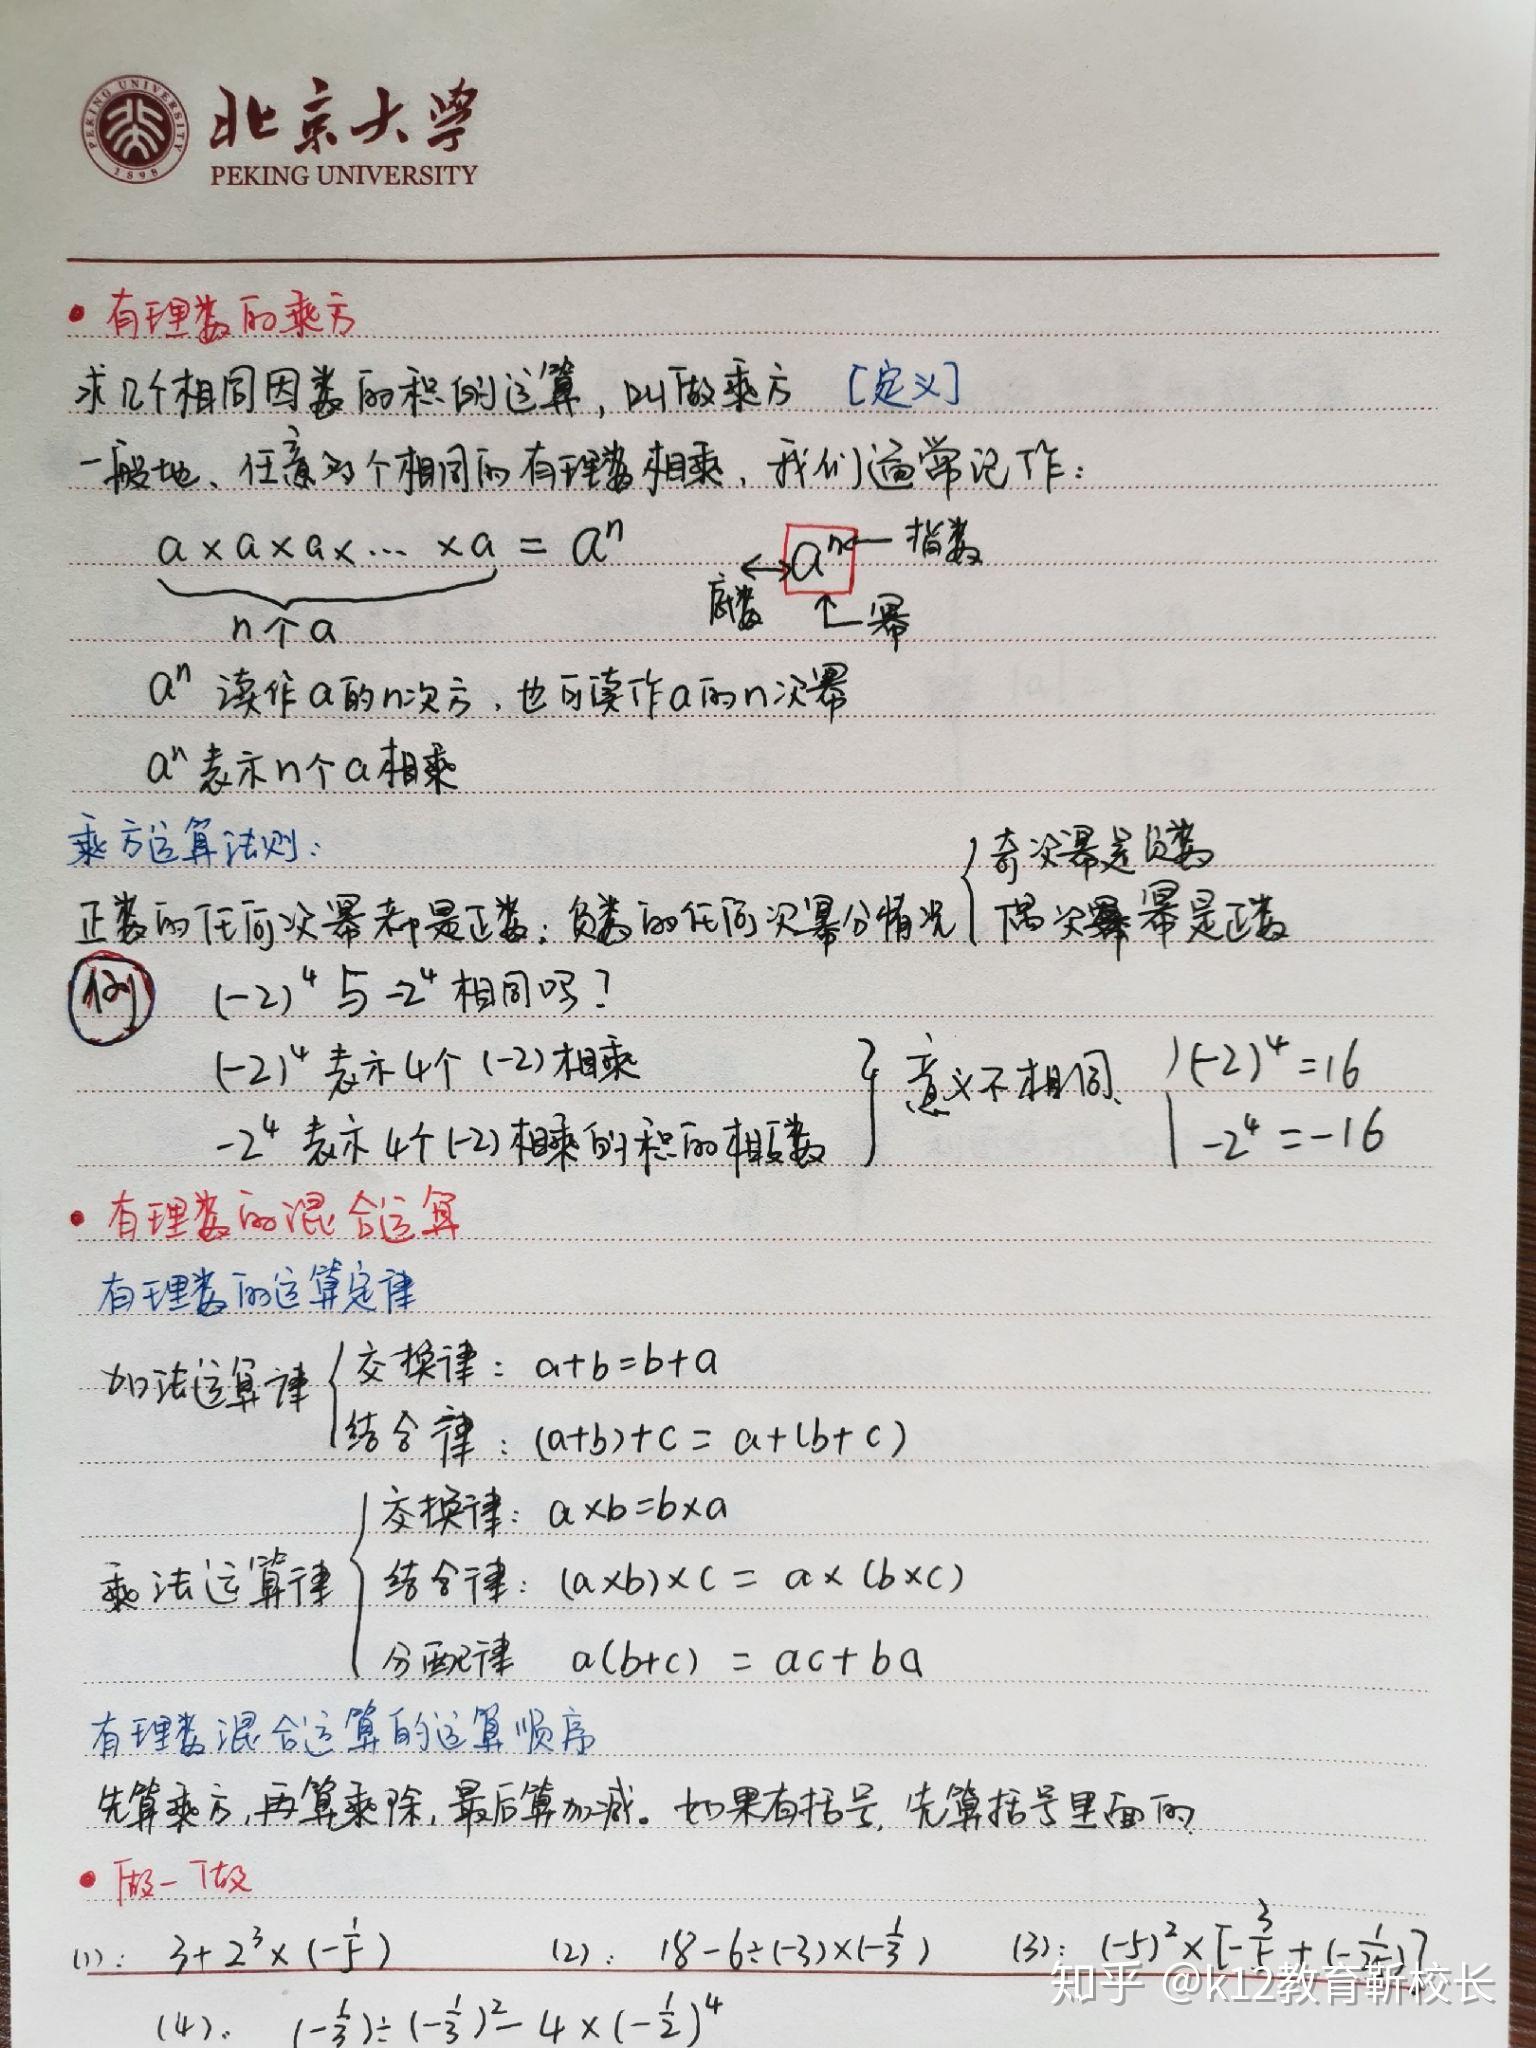 北京大学
PEKING UNIVERSITY
PEKING UNIVERSITY
1898
• 有理数的乘方
求几个相同因数的积的运算，叫做乘方 [定义]
一般地、任意多个相同的有理数相乘，我们通常记作：
a×a×a×… ×a = aⁿ
n个a
aⁿ ← 指数
底数
幂
aⁿ 读作a的n次方，也可读作a的n次幂
aⁿ 表示n个a相乘
乘方运算法则：
正数的任何次幂都是正数；负数的任何次幂分情况 { 奇次幂是负数
偶次幂是正数
例 (-2)⁴与-2⁴相同吗？
(-2)⁴ 表示4个(-2)相乘
-2⁴ 表示4个(-2)相乘的积的相反数
意义不相同、
(-2)⁴=16
-2⁴=-16
• 有理数的混合运算
有理数的运算定律
加法运算律 { 交换律：a+b=b+a
结合律：(a+b)+c=a+(b+c)
乘法运算律 { 交换律：a×b=b×a
结合律：(a×b)×c=a×(b×c)
分配律 a(b+c)=ac+ba
有理数混合运算的运算顺序
先算乘方，再算乘除，最后算加减。如果有括号，先算括号里面的
• 做一做
(1)：3+2³×(-1/5) (2)：18-6÷(-3)×(-1/3) (3)：(-5)²×[-3/5+(-1/25)]
(4)、(-1/3)÷(-1/3)²-4×(-1/2)⁴
知乎 @k12教育靳校长